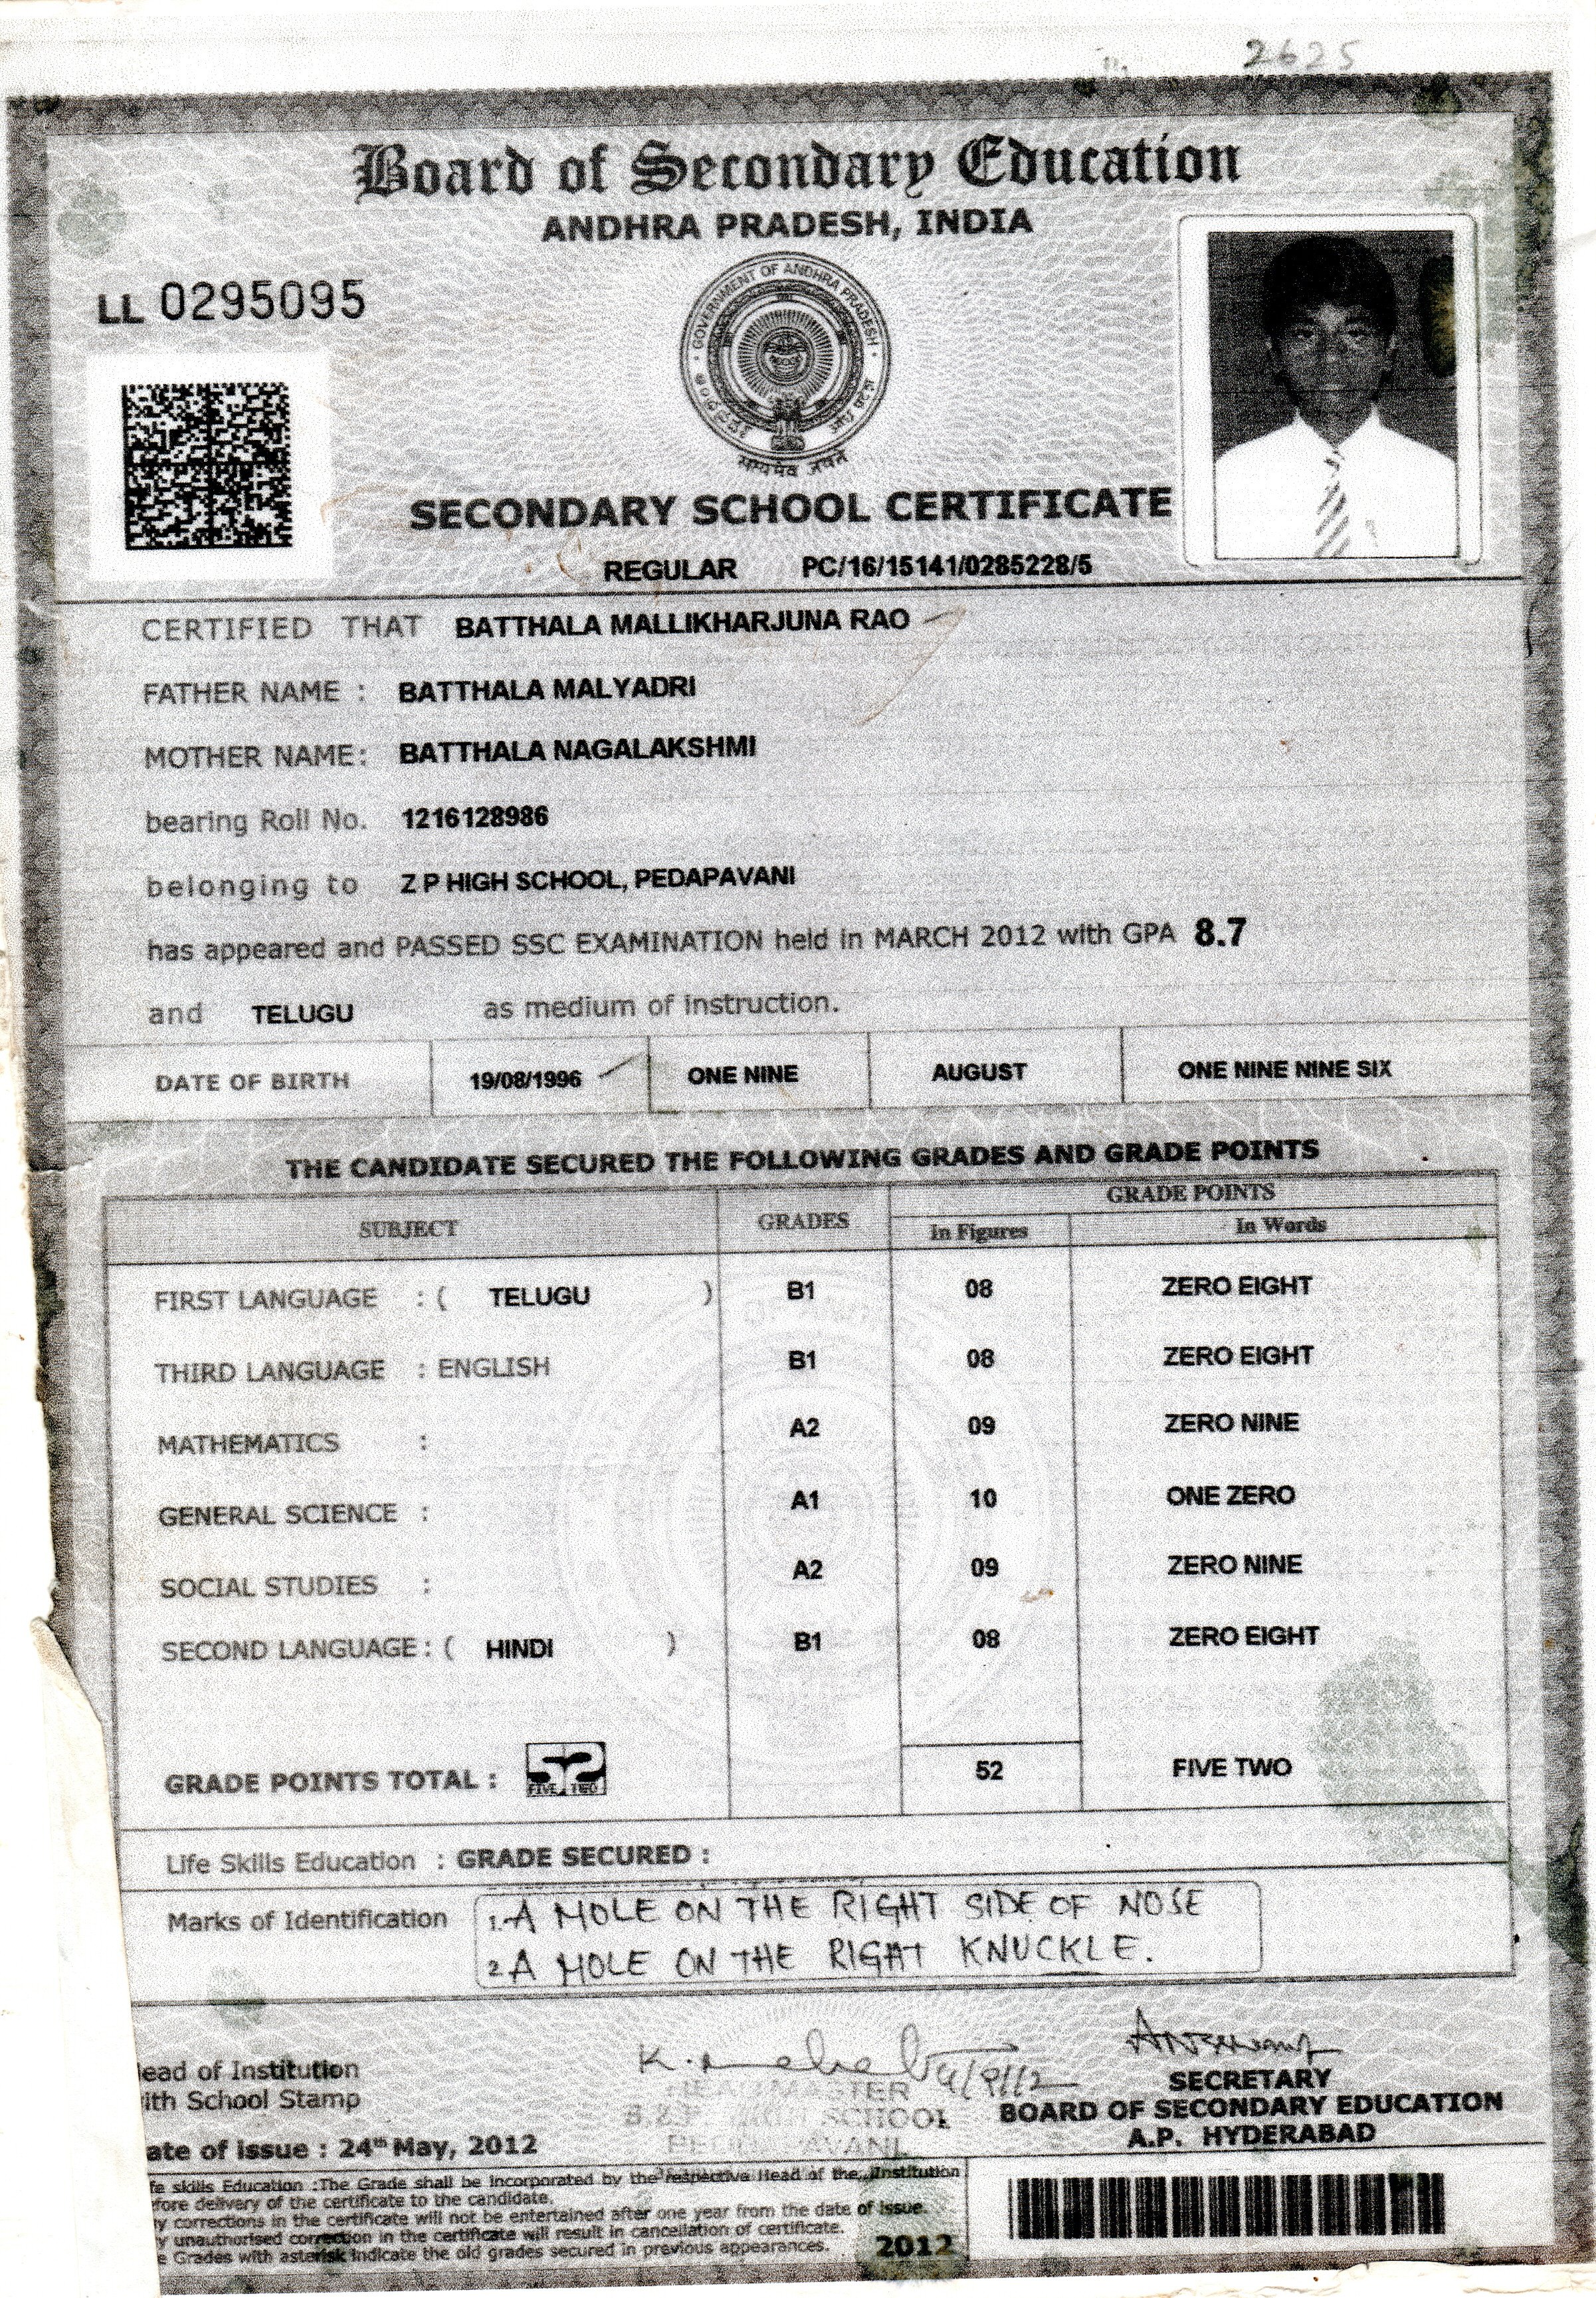 2625
Board of Secondary Education
ANDHRA PRADESH, INDIA
LL 0295095
GOVERNMENT OF ANDHRA PRADESH
सत्यमेव जयते
SECONDARY SCHOOL CERTIFICATE
REGULAR PC/16/15141/0285228/5
CERTIFIED THAT BATTHALA MALLIKHARJUNA RAO
FATHER NAME : BATTHALA MALYADRI
MOTHER NAME: BATTHALA NAGALAKSHMI
bearing Roll No. 1216128986
belonging to Z P HIGH SCHOOL, PEDAPAVANI
has appeared and PASSED SSC EXAMINATION held in MARCH 2012 with GPA 8.7
and TELUGU as medium of instruction.
DATE OF BIRTH 19/08/1996 ONE NINE AUGUST ONE NINE NINE SIX
THE CANDIDATE SECURED THE FOLLOWING GRADES AND GRADE POINTS
SUBJECT GRADES GRADE POINTS
In Figures In Words
FIRST LANGUAGE : ( TELUGU ) B1 08 ZERO EIGHT
THIRD LANGUAGE : ENGLISH B1 08 ZERO EIGHT
MATHEMATICS : A2 09 ZERO NINE
GENERAL SCIENCE : A1 10 ONE ZERO
SOCIAL STUDIES : A2 09 ZERO NINE
SECOND LANGUAGE : ( HINDI ) B1 08 ZERO EIGHT
GRADE POINTS TOTAL : 52 FIVE TWO 52 FIVE TWO
Life Skills Education : GRADE SECURED :
Marks of Identification 1. A MOLE ON THE RIGHT SIDE OF NOSE
2 A MOLE ON THE RIGHT KNUCKLE.
ead of Institution
ith School Stamp
HEADMASTER
SCHOOL
SECRETARY
BOARD OF SECONDARY EDUCATION
A.P. HYDERABAD
ate of issue : 24th May, 2012
fe skills Education :The Grade shall be incorporated by the respective Head of the Institution
fore delivery of the certificate to the candidate.
y corrections in the certificate will not be entertained after one year from the date of issue.
y unauthorised correction in the certificate will result in cancellation of certificate.
e Grades with asterisk indicate the old grades secured in previous appearances.
2012